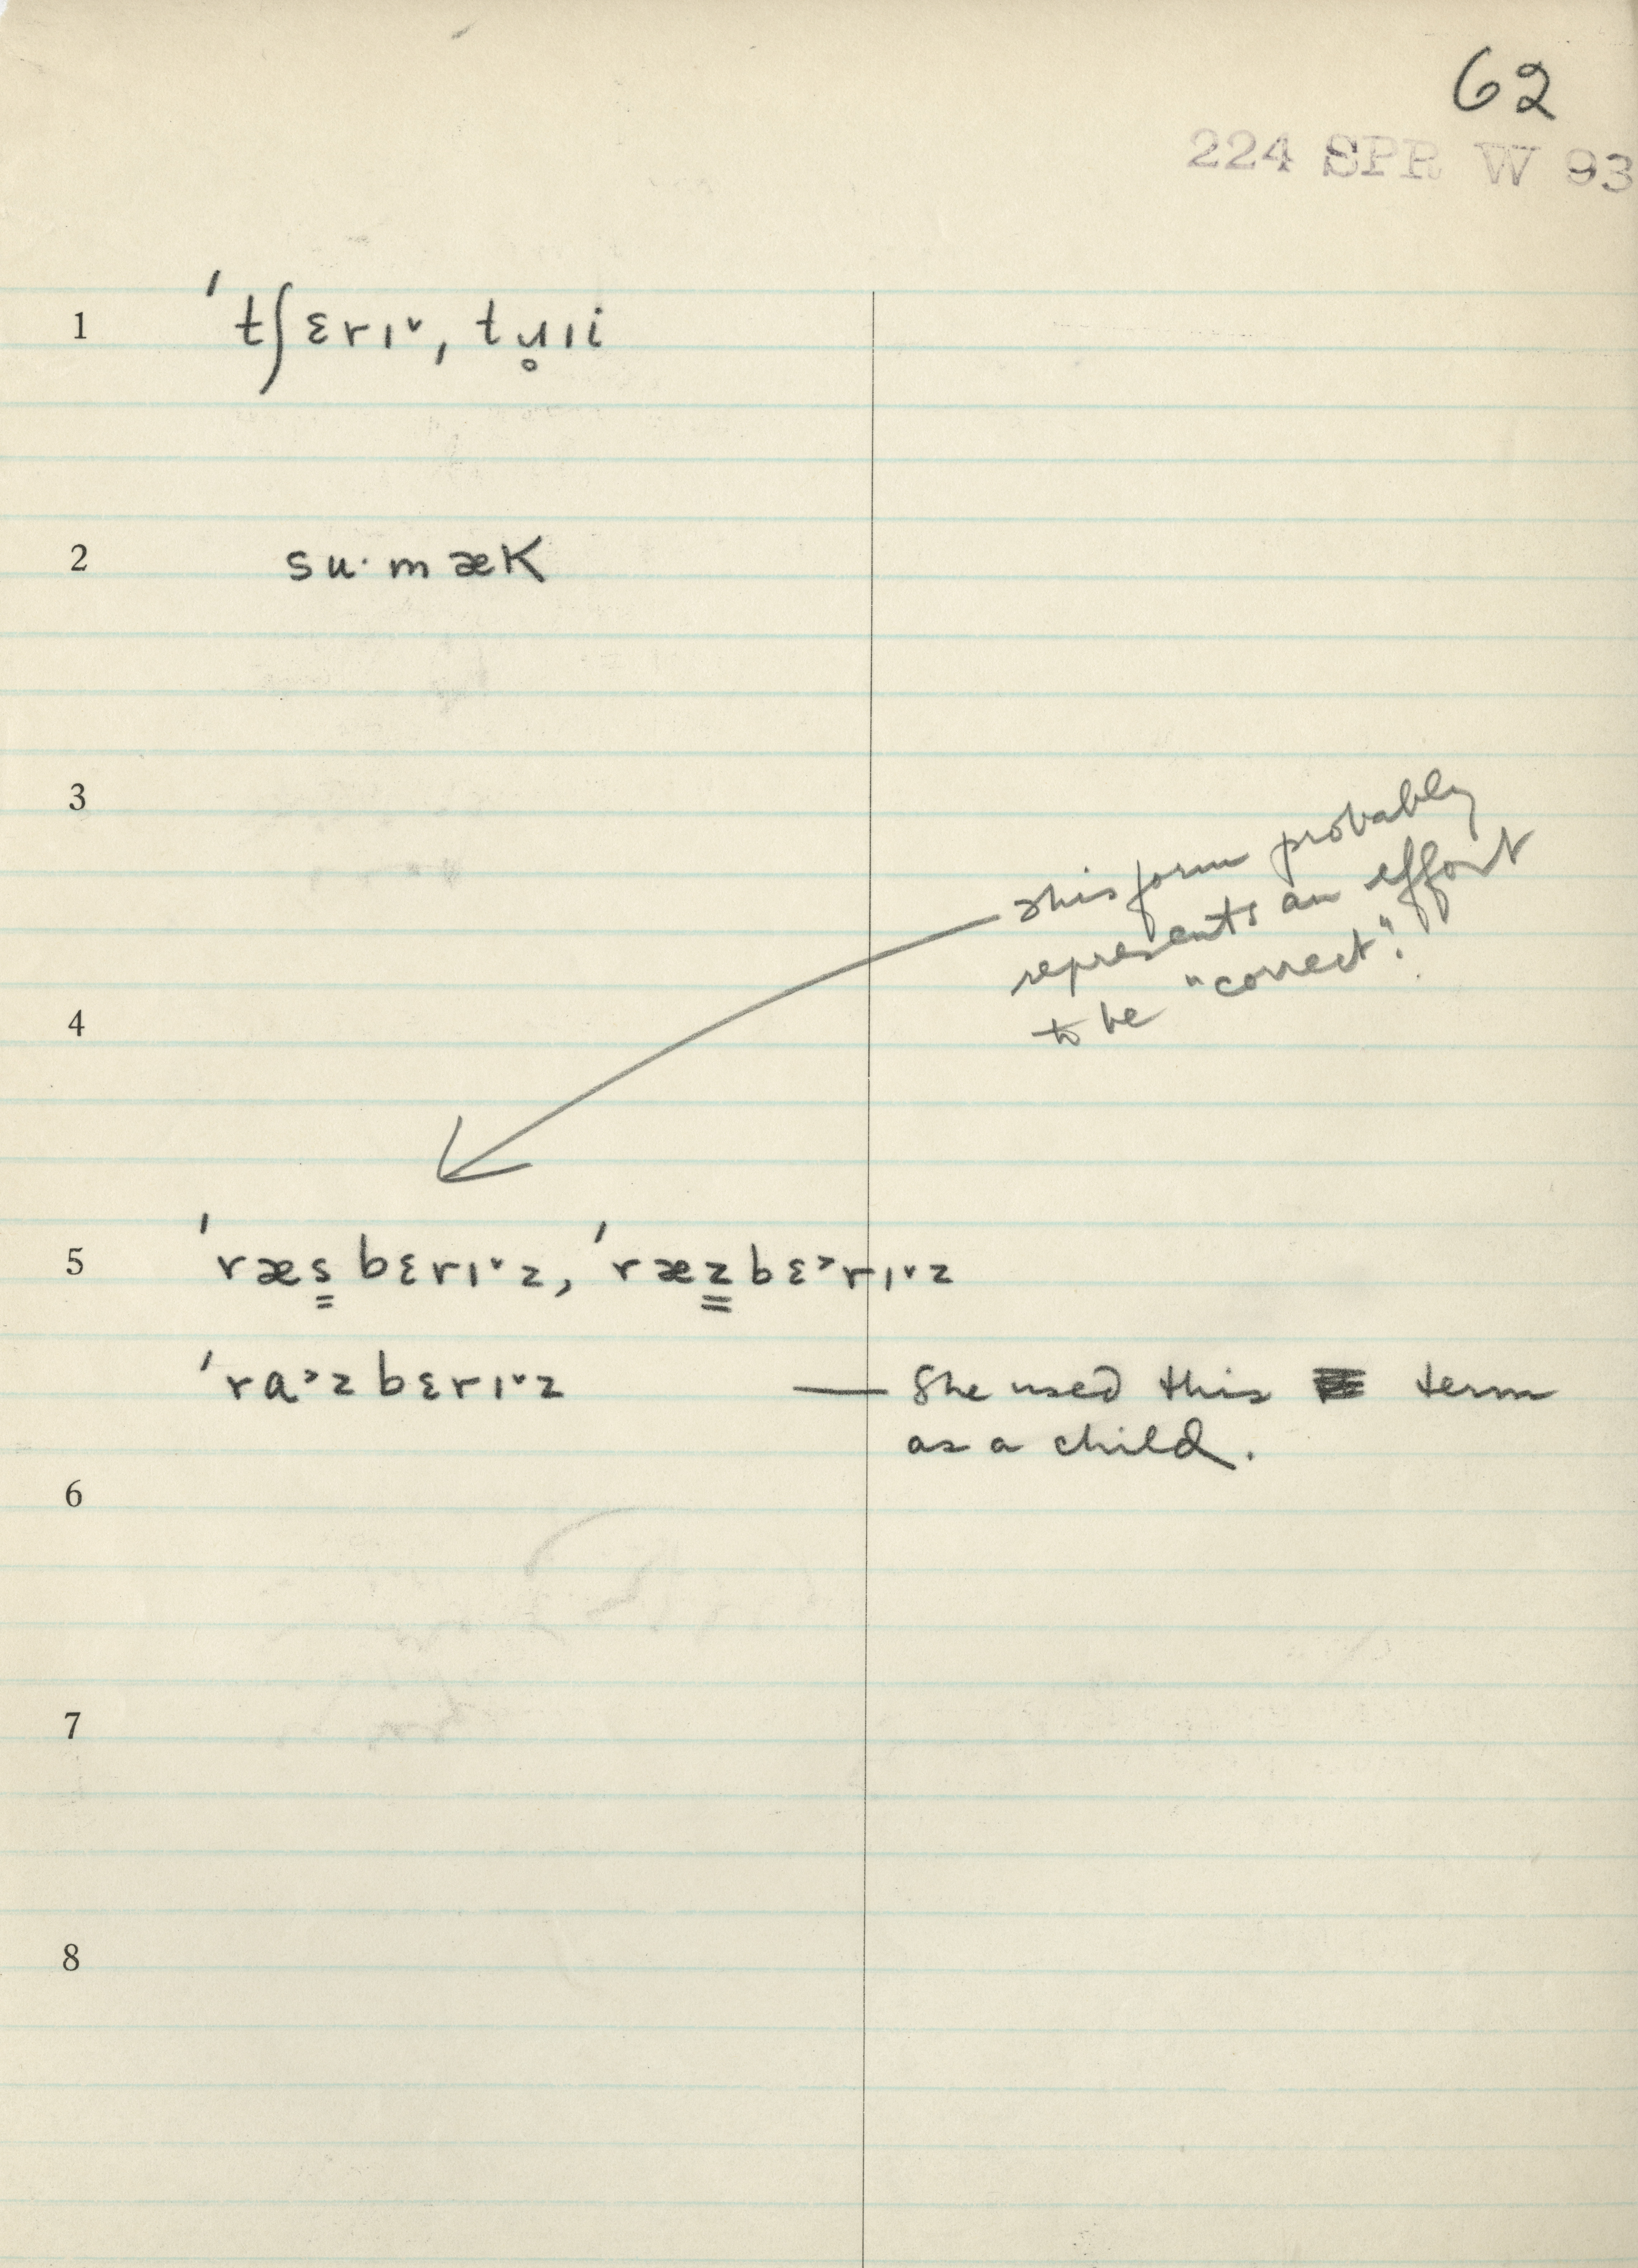 62
224 SPR W 93
1 ˈtʃɛrɪ˅, tɹ̥ɪi
2 su·mæK
3
This form probably
represents an effort
to be "correct".
4
5 ˈræs̳bɛrɪ˅z, ˈræz̳bɛ˃rɪ˅z
ˈra˃zbɛrɪ˅z — She used this term
as a child.
6
7
8